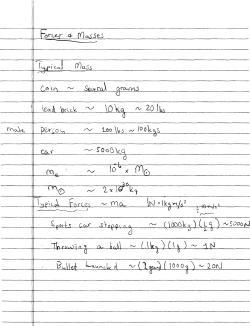 Forces & Masses
Typical Mass
coin ~ several grams
lead brick ~ 10kg ~ 20 lbs
male person ~ 200 lbs ~ 100kgs
car ~ 5000kg
m⊕ ~ 10⁻⁶ × M⊙
M⊙ ~ 2×10³⁰ kg
Typical Forces ~ ma 1N = 1kg m/s²
Sports car stopping ~ (1000kg)(½g) ~ 5000N
Throwing a ball ~ (.1kg)(1g) ~ 1N
Bullet Launched ~ (2 gram)(1000g) ~ 20N